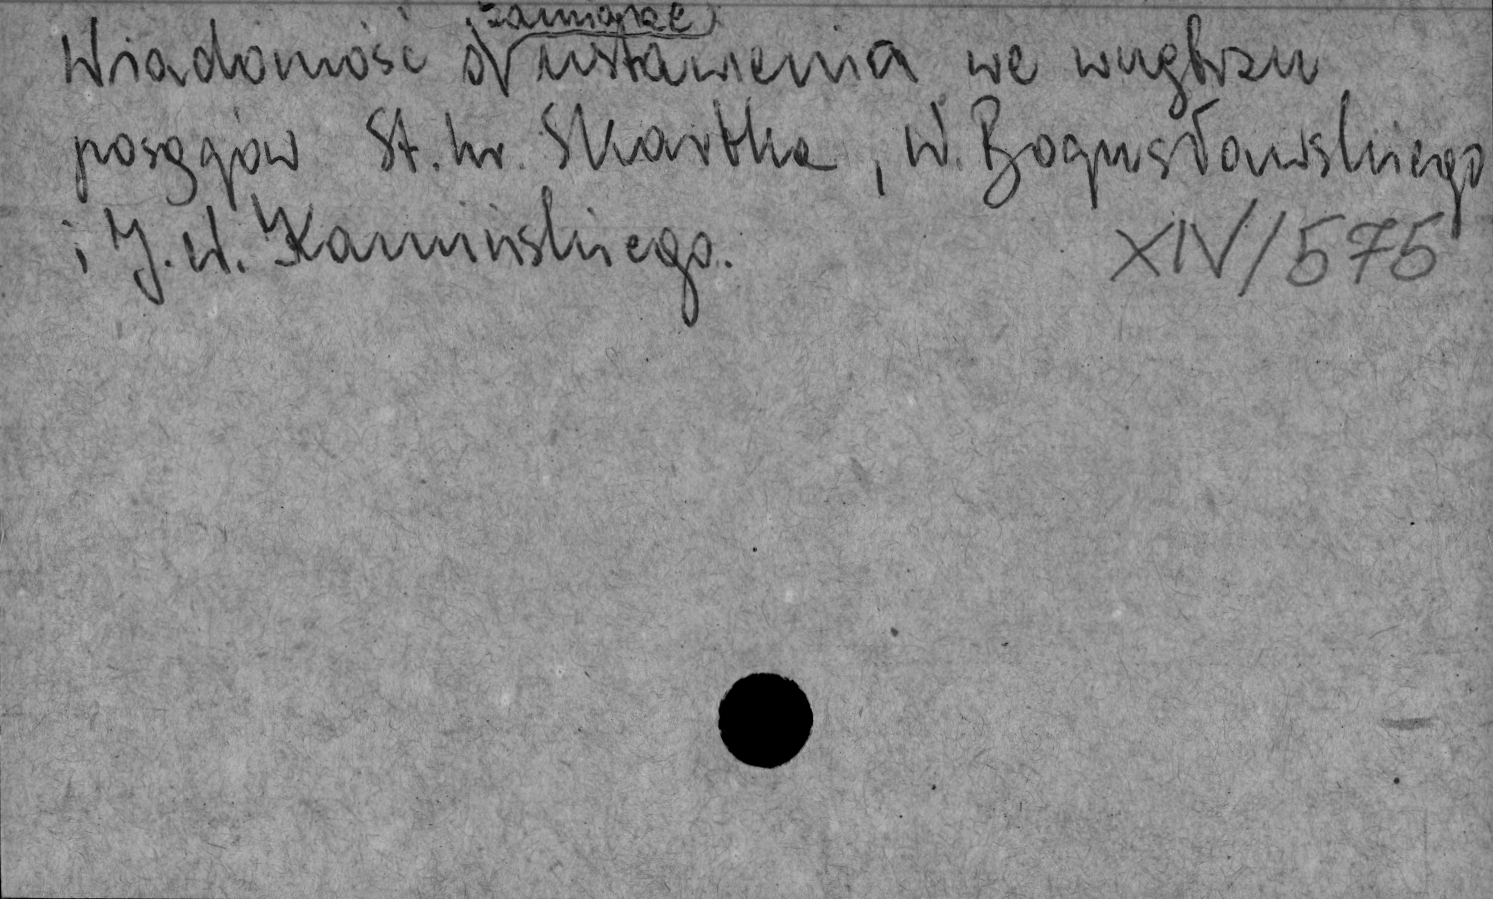 zamiarze
Wiadomość o ustawienia we wnętrzu
posągów St. hr. Skarbka, W. Bogusławskiego
i J. N. Kamińskiego.
XIV/575